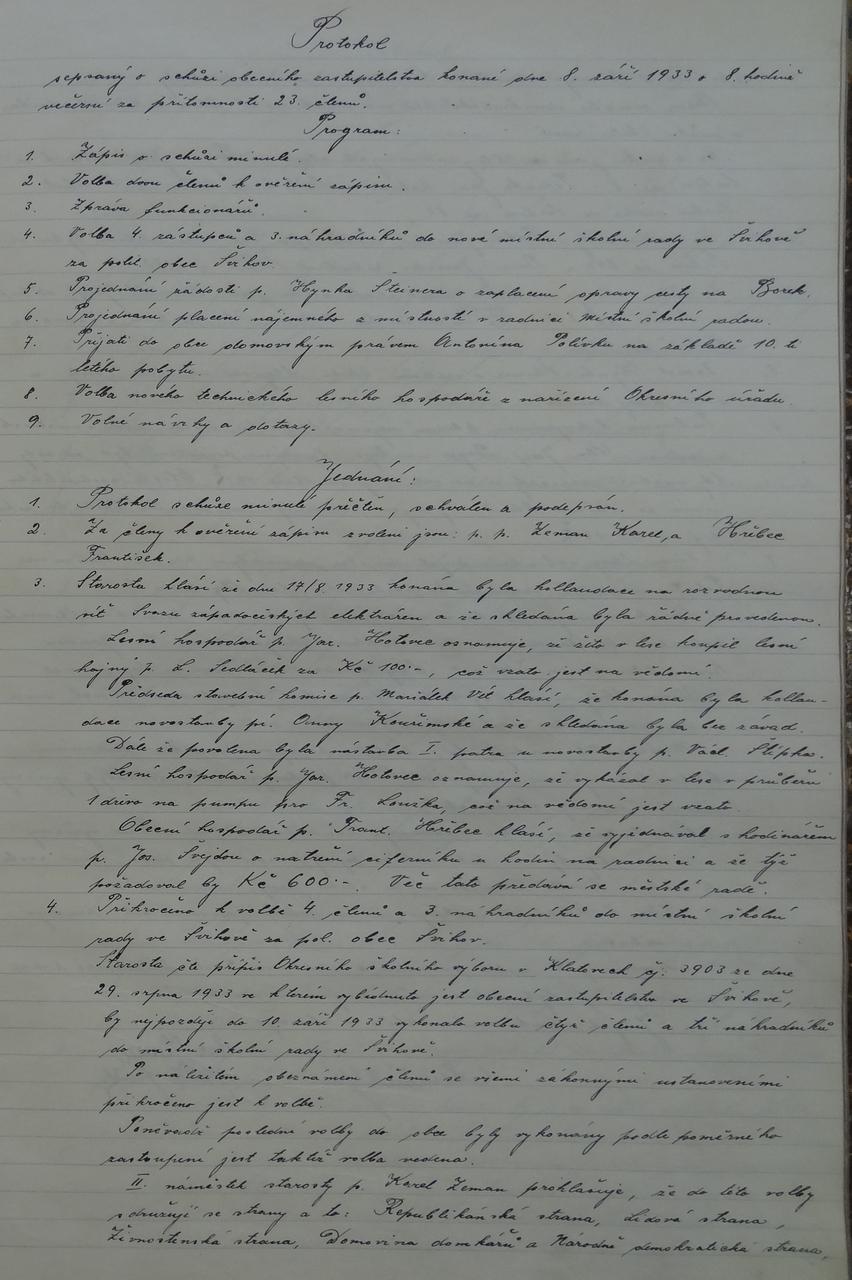 Protokol
sepsaný o schůzi obecního zastupitelstva konané dne 8. září 1933 o 8. hodině
večerní za přítomnosti 23. členů.
Program:
1. Zápis o schůzi minulé.
2. Volba dvou členů k ověření zápisu.
3. Zpráva funkcionářů.
4. Volba 4. zástupců a 3. náhradníků do nové místní školní rady ve Švihově
za polit. obec Švihov.
5. Projednání žádosti p. Hynka Steinera o zaplacení opravy cesty na Borek.
6. Projednání placení nájemného z místností v radnici místní školní radou.
7. Přijatí do obce domovským právem Antonína Polívku na základě 10. ti
letého pobytu.
8. Volba nového technického lesního hospodáře z nařízení Okresního úřadu.
9. Volné návrhy a dotazy.
Jednání:
1. Protokol schůze minulé přečten, schválen a podepsán.
2. Za členy k ověření zápisu zvoleni jsou: p. p. Zeman Karel, a Hřebec
František.
3. Starosta hlásí že dne 17/8. 1933 konána byla kollaudace na rozvodnou
síť Svazu západočeských elektráren a že shledána byla řádně provedenou.
Lesní hospodář p. Jar. Hotovec oznamuje, že žito v lese koupil lesní
hajný p. L. Sedláček za Kč 100·-, což vzato jest na vědomí.
Předseda stavební komise p. Mariálek Vít hlásí, že konána byla kollau-
dace novostavby pí. Anny Kouřimské a že shledána byla bez závad.
Dále že povolena byla nástavba I. patra u novostavby p. Václ. Štípka.
Lesní hospodář p. Jar. Hotovec oznamuje, že vykázal v lese v průběhu
1 dřevo na pumpu pro Fr. Loužka, což na vědomí jest vzato.
Obecní hospodář p. Frant. Hřebec hlásí, že vyjednával s hodinářem
p. Jos. Švejdou o natření ciferníku u hodin na radnici a že týž
požadoval by Kč 600·-. Věc tato předává se městské radě.
4. Přikročeno k volbě 4. členů a 3. náhradníků do místní školní
rady ve Švihově za pol. obec Švihov.
Starosta čte přípis Okresního školního výboru v Klatovech čj. 3903 ze dne
29. srpna 1933 ve kterém vybídnuto jest obecní zastupitelstvo ve Švihově,
by nejpozději do 10. září 1933 vykonalo volbu čtyř členů a tří náhradníků
do místní školní rady ve Švihově.
Po náležitém obeznámení členů se všemi zákonnými ustanoveními
přikročeno jest k volbě.
Poněvadž poslední volby do obce byly vykonány podle poměrného
zastoupení jest taktéž volba vedena.
II. náměstek starosty p. Karel Zeman prohlašuje, že do této volby
sdružují se strany a to: Republikánská strana, Lidová strana,
Živnostenská strana, Domovina domkářů a Národně demokratická strana,